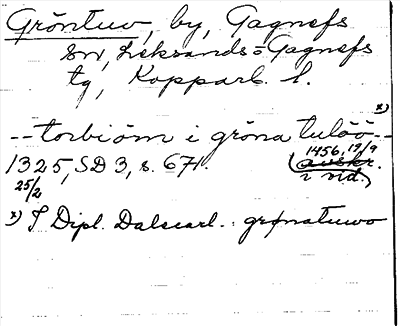 Gröntuv, by, Gagnefs
sn, Leksands=Gagnefs
tg, Kopparb. l.
x)
--torbiöm i gröna tulöö--
1325, SD 3, s. 671. (1456, 19/9
25/2 avskr.
i vid.)
x) I Dipl. Dalecarl.: grønatuwo